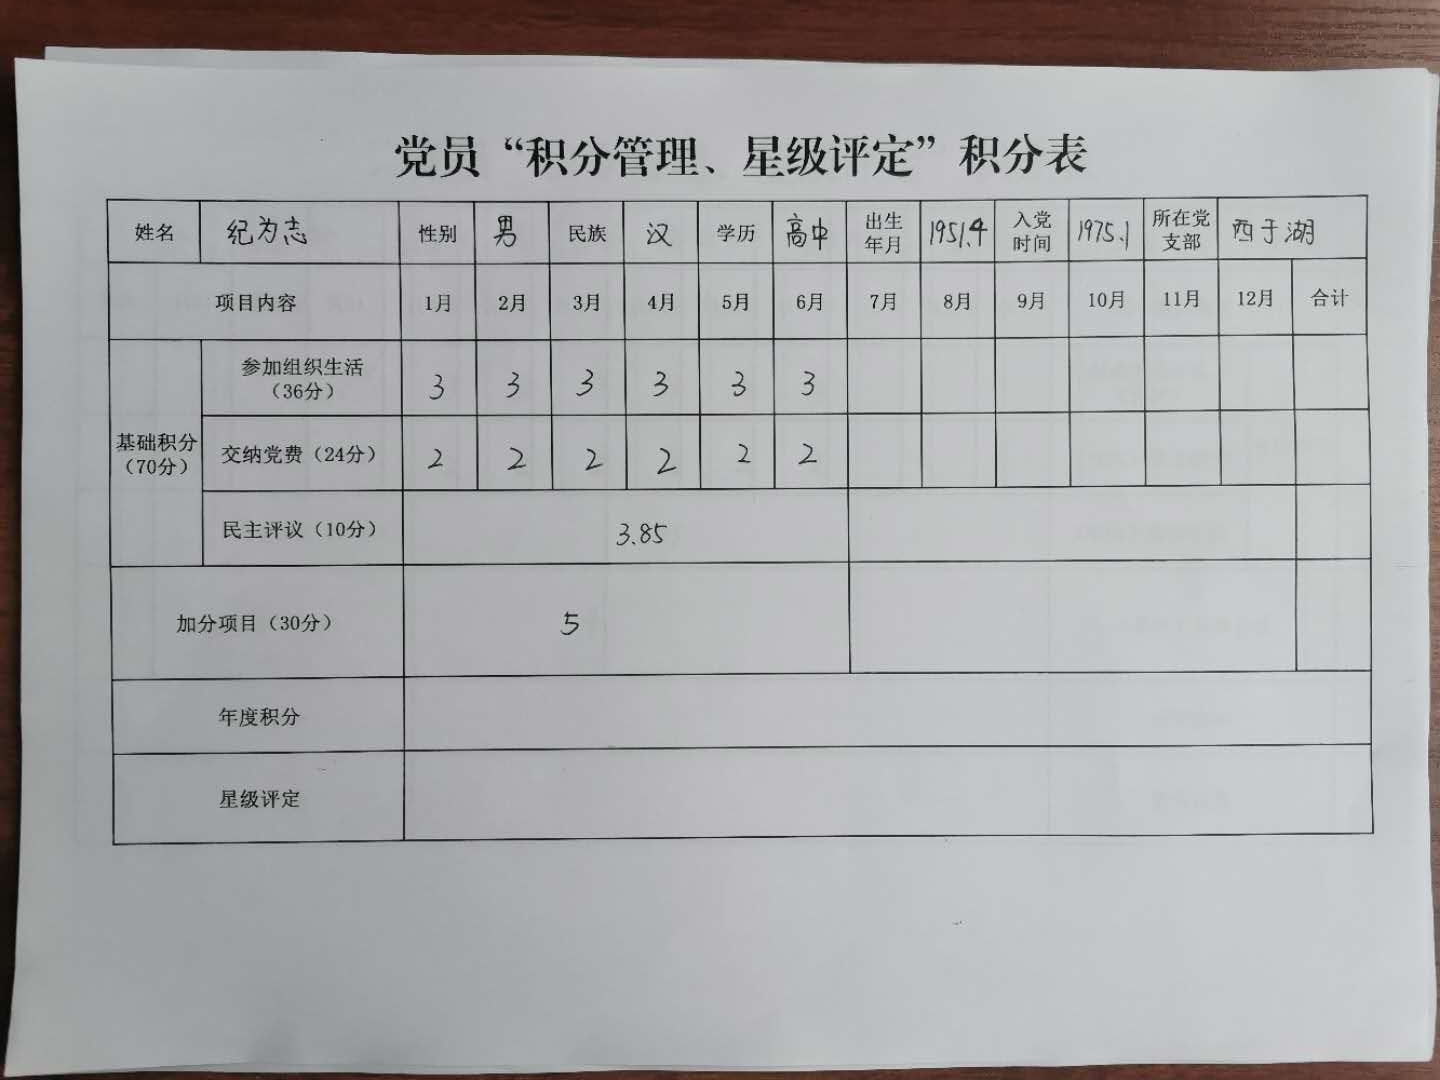 党员“积分管理、星级评定”积分表
姓名 纪为志 性别 男 民族 汉 学历 高中 出生年月 1951.4 入党时间 1975.1 所在党支部 西于湖
项目内容 1月 2月 3月 4月 5月 6月 7月 8月 9月 10月 11月 12月 合计
基础积分（70分）
参加组织生活（36分） 3 3 3 3 3 3
交纳党费（24分） 2 2 2 2 2 2
民主评议（10分） 3.85
加分项目（30分） 5
年度积分
星级评定